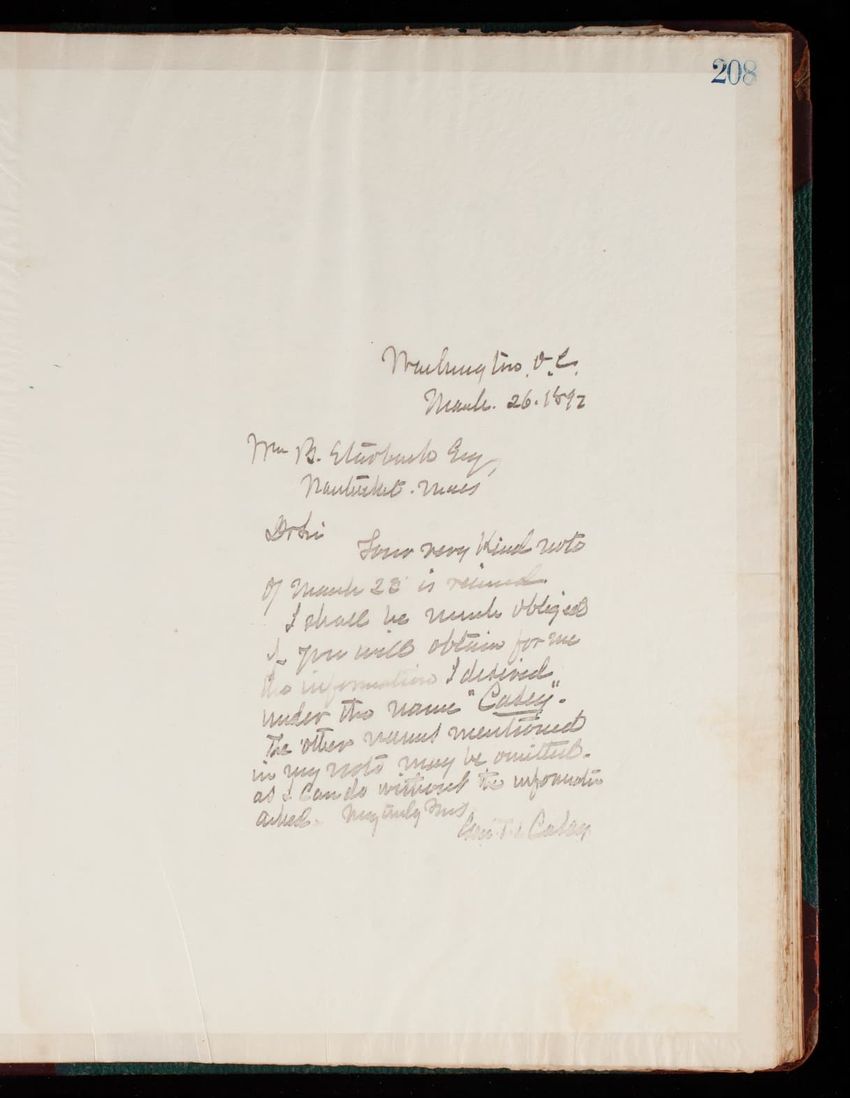 208
Washington, D.C.
March. 26. 1892
Wm B. Starbuck Esq,
Nantucket. Mass
Dr Sir
Your very kind note
of March 23 is received.
I shall be much obliged
if you will obtain for me
the information I desired
under the name "Casey".
The other names mentioned
in my note may be omitted.
as I can do without the information
asked. Very truly Yours
Casey